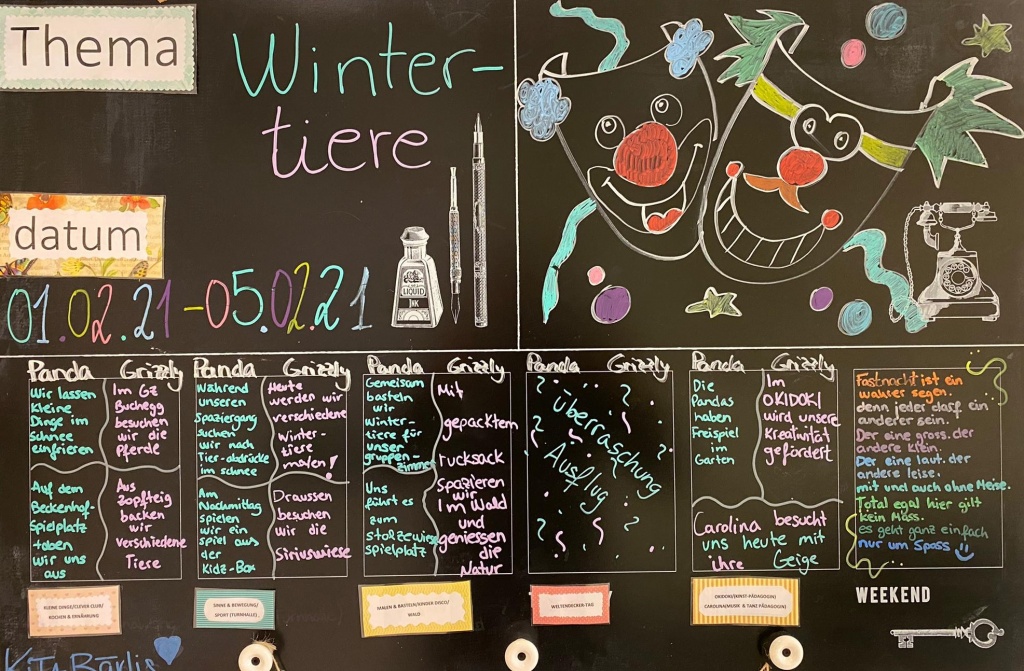 Thema
Winter-
tiere
datum
01.02.21-05.02.21
LIQUID
INK
Panda Grizzly
Wir lassen
kleine
Dinge im
Schnee
einfrieren
Im GZ
Buchegg
besuchen
wir die
Pferde
Auf dem
Beckenhof-
Spielplatz
toben
wir uns
aus
Aus
Zopfteig
backen
wir
verschiedene
Tiere
Panda Grizzly
Während
unseren
Spaziergang
suchen
wir nach
Tier-abdrücke
im schnee
Heute
werden wir
verschiedene
Winter-
tiere
malen!
Am
Nachmittag
spielen
wir ein
spiel aus
der
Kidz-Box
Draussen
besuchen
wir die
Siriuswiese
Panda Grizzly
Gemeinsam
basteln
wir
Winter-
tiere für
unser
gruppen-
zimmer
Uns
führt es
zum
stolzewiese
spielplatz
Mit
gepacktem
rucksack
spazieren
wir
Im Wald
und
geniessen
die
Natur
Panda Grizzly
Überraschung
Ausflug
Panda Grizzly
Die
Pandas
haben
Freispiel
im
Garten
Im
OKIDOKI
wird unsere
Kreativität
gefördert
Carolina besucht
uns heute mit
ihre Geige
Fastnacht ist ein
wahrer segen.
denn jeder darf ein
anderer sein.
Der eine gross. der
andere klein.
Der eine laut. der
andere leise.
mit und auch ohne Meise.
Total egal hier gilt
kein Mass.
es geht ganz einfach
nur um Spass
KLEINE DINGE/CLEVER CLUB/
KOCHEN & ERNÄHRUNG
SINNE & BEWEGUNG/
SPORT (TURNHALLE)
MALEN & BASTELN/KINDER DISCO/
WALD
WELTENDECKER-TAG
OKIDOKI/KUNST-PÄDAGOGIN)
CAROLINA(MUSIK & TANZ PÄDAGOGIN)
WEEKEND
Kita Bärlis